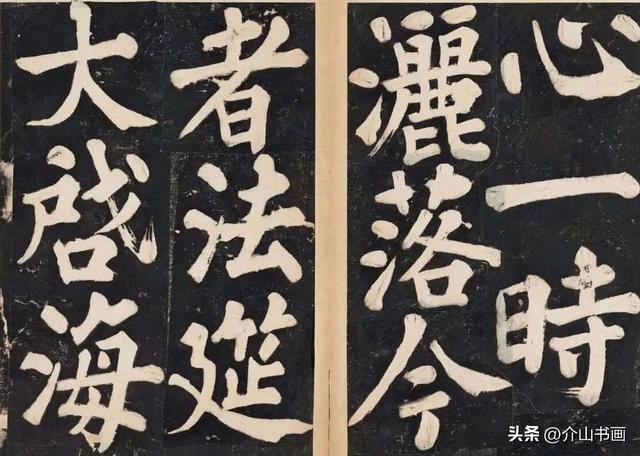 心一時
灑落今
者法筵
大啓海
头条 @介山书画